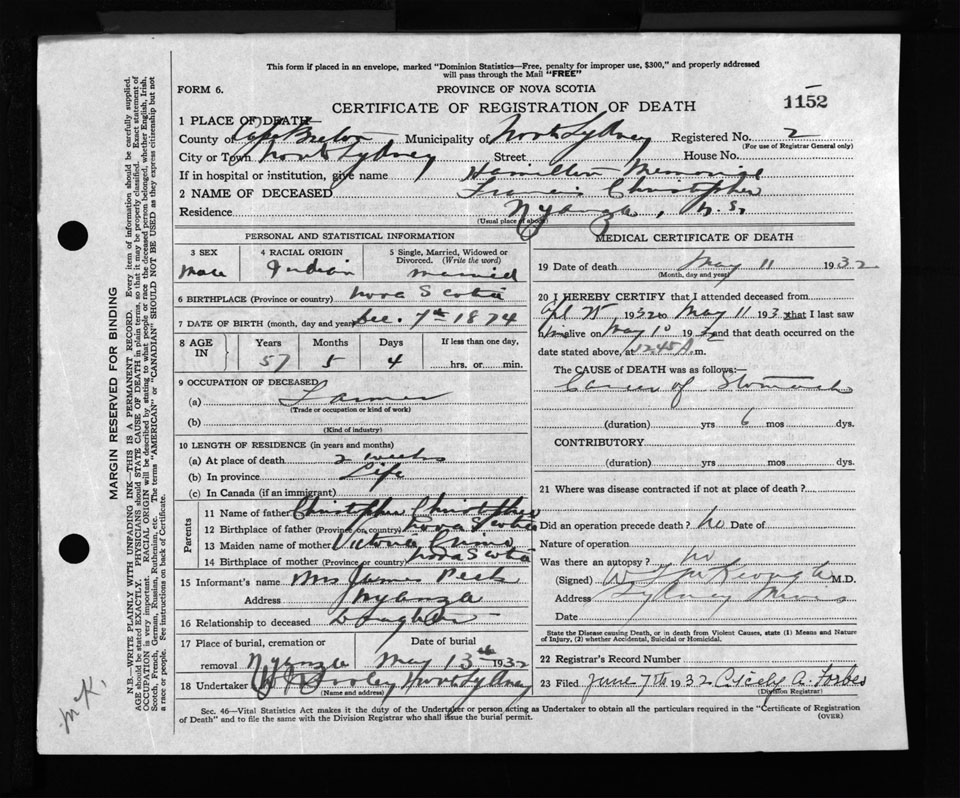 This form if placed in an envelope, marked "Dominion Statistics—Free, penalty for improper use, $300," and properly addressed
will pass through the Mail "FREE"
FORM 6.
PROVINCE OF NOVA SCOTIA
1152
CERTIFICATE OF REGISTRATION OF DEATH
1 PLACE OF DEATH
County of Cape Breton Municipality of North Sydney Registered No. 2
(For use of Registrar General only)
City or Town North Sydney Street House No.
If in hospital or institution, give name Hamilton Memorial
2 NAME OF DECEASED Francis Christopher
Residence Nyanza, N.S.
(Usual place of abode)
PERSONAL AND STATISTICAL INFORMATION
3 SEX Male
4 RACIAL ORIGIN Indian
5 Single, Married, Widowed or Divorced. (Write the word) Married
6 BIRTHPLACE (Province or country) Nova Scotia
7 DATE OF BIRTH (month, day and year) Dec. 7th 1874
8 AGE IN Years 57 Months 5 Days 4 If less than one day, hrs. or min.
9 OCCUPATION OF DECEASED
(a) Farmer
(Trade or occupation or kind of work)
(b)
(Kind of industry)
10 LENGTH OF RESIDENCE (in years and months)
(a) At place of death 2 weeks
(b) In province Life
(c) In Canada (if an immigrant)
Parents
11 Name of father Christopher Christopher
12 Birthplace of father (Province or country) Nova Scotia
13 Maiden name of mother Victoria
14 Birthplace of mother (Province or country) Nova Scotia
15 Informant's name Mrs James Peck
Address Nyanza
16 Relationship to deceased Daughter
17 Place of burial, cremation or removal Nyanza
Date of burial May 13th 1932
18 Undertaker North Sydney
(Name and address)
MEDICAL CERTIFICATE OF DEATH
19 Date of death May 11 1932
(Month, day and year)
20 I HEREBY CERTIFY that I attended deceased from
Apl 1932 to May 11 193 that I last saw
h alive on May 10 193 and that death occurred on
date stated above, at 12.45 A. m.
The CAUSE of DEATH was as follows:—
Cancer of Stomach
(duration) yrs 6 mos dys.
CONTRIBUTORY
(duration) yrs mos dys.
21 Where was disease contracted if not at place of death?
Did an operation precede death? no Date of
Nature of operation
Was there an autopsy? no
(Signed) W. L. McKeough M.D.
Address Sydney Mines
Date
State the Disease causing Death, or in death from Violent Causes, state (1) Means and Nature
of Injury, (2) whether Accidental, Suicidal or Homicidal.
22 Registrar's Record Number
23 Filed June 7th 1932 Cicely A. Forbes
(Division Registrar)
Sec. 46—Vital Statistics Act makes it the duty of the Undertaker or person acting as Undertaker to obtain all the particulars required in the "Certificate of Registration
of Death" and to file the same with the Division Registrar who shall issue the burial permit.
(OVER)
MARGIN RESERVED FOR BINDING
N.B.—WRITE PLAINLY WITH UNFADING INK—THIS IS A PERMANENT RECORD. Every item of information should be carefully supplied.
AGE should be stated EXACTLY. PHYSICIANS should STATE CAUSE OF DEATH in plain terms, so that it may be properly classified. Exact statement of
OCCUPATION is very important. RACIAL ORIGIN will be described by stating to what people or race the deceased person belonged, whether English, Irish,
Scotch, French, German, Russian, Ruthenian, etc. The terms "AMERICAN" or "CANADIAN" SHOULD NOT BE USED as they express citizenship but not
a race or people. See instructions on back of Certificate.
McK.